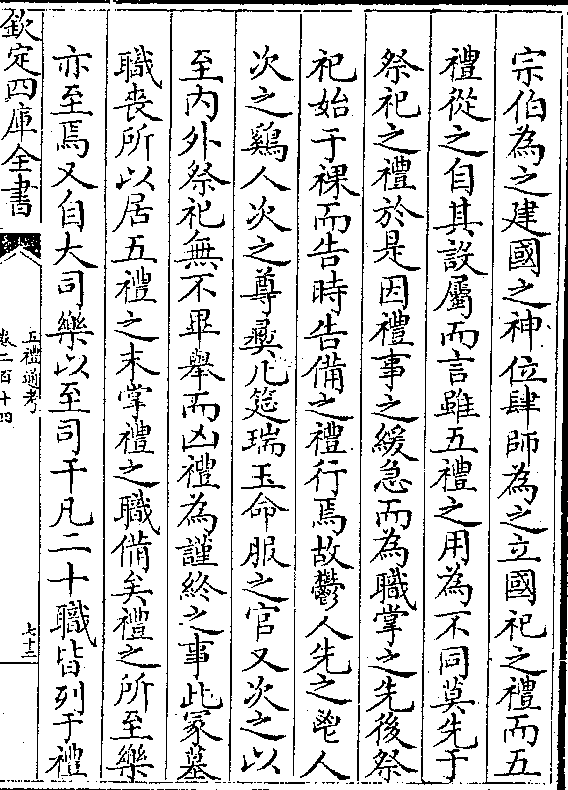 宗伯為之建國之神位肆師為之立國祀之禮而五
禮從之自其設屬而言雖五禮之用為不同莫先于
祭祀之禮於是因禮事之緩急而為職掌之先後祭
祀始于祼而告時告備之禮行焉故鬱人先之鬯人
次之鷄人次之尊彛几筵瑞玉命服之官又次之以
至内外祭祀無不畢舉而凶禮為謹終之事此冡墓
職喪所以居五禮之末掌禮之職備矣禮之所至樂
亦至焉又自大司樂以至司干凡二十職皆列于禮
欽定四庫全書
五禮通考
卷二百十四
七十三